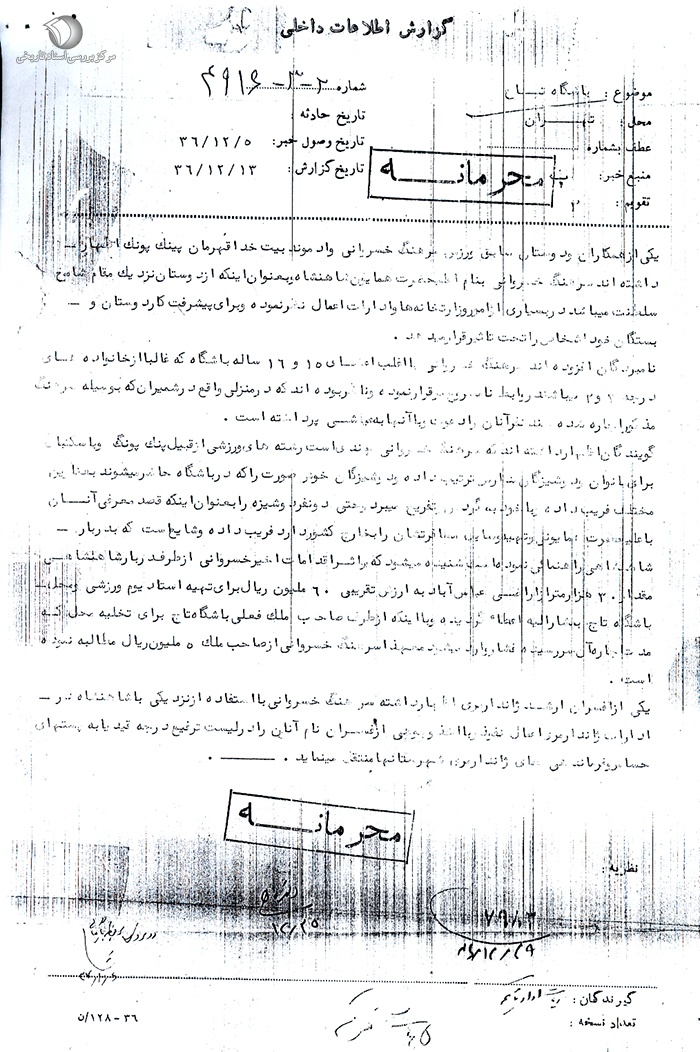 مرکز بررسی اسناد تاریخی
گزارش اطلاعات داخلی
موضوع : باشگاه تاج
شماره
محل : تهران
تاریخ حادثه :
عطف بشماره
تاریخ وصول خبر : ۳۶/۱۲/۵
منبع خبر :
تاریخ گزارش : ۳۶/۱۲/۱۳
محرمانه
تقویم : ۲
یکی از همکاران و دوستان سابق ورزشی سرهنگ خسروانی واد موند بیت خدا قهرمان پینک پونک اظهار
داشته اند سرهنگ خسروانی بنام اعلیحضرت همایون شاهنشاه وبعنوان اینکه از دوستان نزد یك مقام شامخ
سلطنت میباشد در بسیاری از امور وزارتخانه ها وادارات اعمال نفوذ نموده وبرای پیشرفت کار دوستان و
بستگان خود اشخاص را تحت تاثیر قرار میدهد .
نامبردگان افزوده اند سرهنگ خسروانی با اغلب اعضای ۱۵ و ۱۶ ساله باشگاه که غالبا از خانواده های
درجه ۲ و ۳ میباشند روابط نامشروع برقرار نموده وناظر بوده اند که در منزلی واقع در شمیران که بوسیله سرهنگ
مذکور اجاره شده چند نفر آنان را دعوت وبا آنها به عیاشی پرداخته است .
گویندگان اظهار داشته اند که سرهنگ خسروانی چندی است رشته های ورزشی از قبیل پنك پونگ وباسکتبال
برای بانوان ودوشیزگان مدارس ترتیب داده ودوشیزگان خوش صورت را که در باشگاه حاضر میشوند بعناوین
مختلف فریب داده وبا خود به گردش وتفریح میبرد وحتی دو نفر دوشیزه را بعنوان اینکه قصد معرفی آنان
با علیحضرت همایونی وتهیه وسایل مسافرتشان را بخارج کشور دارد فریب داده وشایع است که بدربار
شاهنشاهی راهنمائی نموده است شنیده میشود که بر اثر اقدامات اخیر خسروانی از طرف دربار شاهنشاهی
مقدار ۳۰ هزار متر از اراضی عباس آباد به ارزش تقریبی ۶۰ ملیون ریال برای تهیه استاد یوم ورزشی ومحل
باشگاه تاج بمشارالیه اعطاء گردیده وبا اینکه از طرف صاحب ملك فعلی باشگاه تاج برای تخلیه محل که
مدت اجاره آن سررسیده فشار وارد میشود معهذا سرهنگ خسروانی از صاحب ملك ۵ ملیون ریال مطالبه نموده
است .
یکی از افسران ارشد ژاندارمری اظهار داشته سرهنگ خسروانی با استفاده از نزدیکی با شاهنشاه در
ادارات ژاندارمری اعمال نفوذ وبا اخذ وجوهی از افسران نام آنان را در لیست ترفیع درجه قید یا به پستهای
حساس وفرماندهی های ژاندارمری شهرستانها منتقل مینماید .
محرمانه
نظریه :
گیرندگان :
تعداد نسخه :
۳۶-۱۲۸/ن